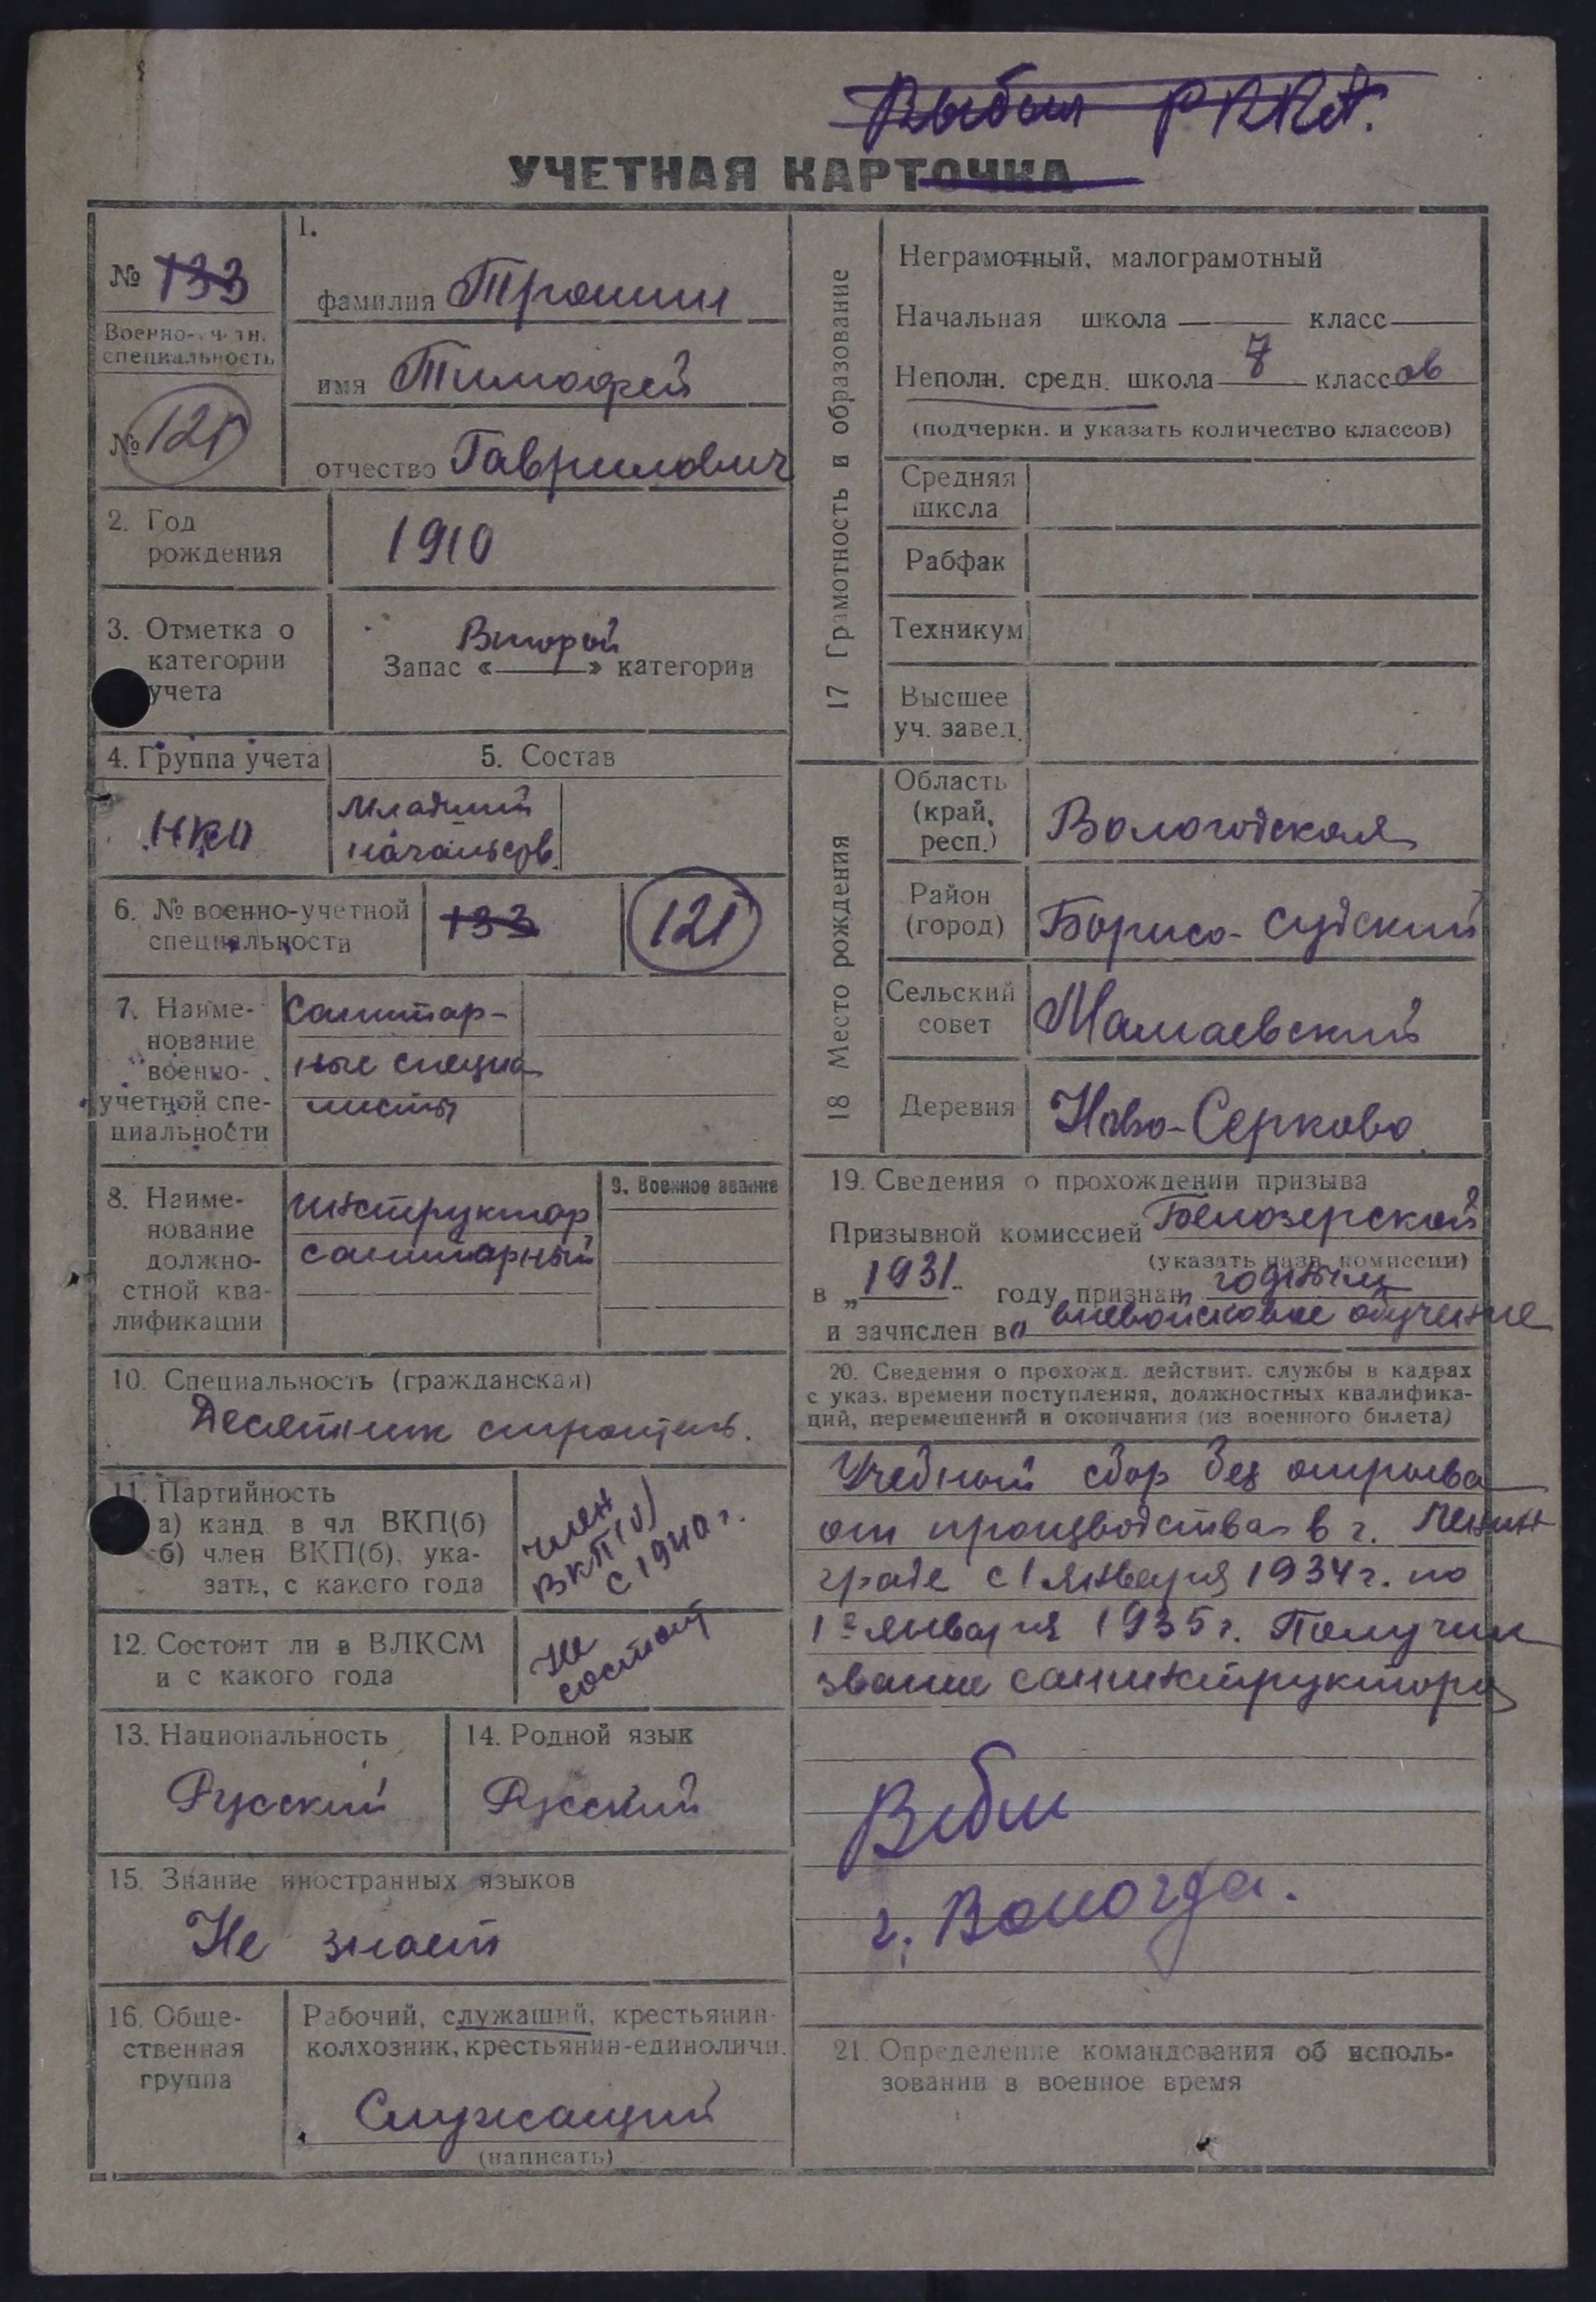 Выбыл РККА.
УЧЕТНАЯ КАРТОЧКА
№ 133
Военно-учетн.
специальность
№ 121
1.
фамилия Трошин
имя Тимофей
отчество Гаврилович
2. Год
рождения
1910
3. Отметка о
категории
учета
Второй
Запас «——» категории
4. Группа учета
НКО
5. Состав
Младший
начальств.
6. № военно-учетной
специальности
133
121
7. Наиме-
нование
военно-
учетной спе-
циальности
Санитар-
ные специа
листы
8. Наиме-
нование
должно-
стной ква-
лификации
инструктор
санитарный
9. Военное звание
10. Специальность (гражданская)
Десятник строитель.
11. Партийность
а) канд. в чл ВКП(б)
б) член ВКП(б), ука-
зать, с какого года
член
ВКП(б)
с 1940 г.
12. Состоит ли в ВЛКСМ
и с какого года
не
состоит
13. Национальность
Русский
14. Родной язык
Русский
15. Знание иностранных языков
Не знает
16. Обще-
ственная
группа
Рабочий, служащий, крестьянин-
колхозник, крестьянин-единоличн.
Служащий
(написать)
17 Грамотность и образование
Неграмотный, малограмотный
Начальная школа —— класс——
Неполн. средн. школа 7 классов
(подчеркн. и указать количество классов)
Средняя
школа
Рабфак
Техникум
Высшее
уч. завед.
18 Место рождения
Область
(край,
респ.)
Вологодская
Район
(город)
Борисо-Судский
Сельский
совет
Мамаевский
Деревня
Ново-Серково
19. Сведения о прохождении призыва
Призывной комиссией Белозерской
(указать назв. комиссии)
в „1931“ году признан годным
и зачислен в вневойсковое обучение
20. Сведения о прохожд. действит. службы в кадрах
с указ. времени поступления, должностных квалифика-
ций, перемещений и окончания (из военного билета)
Учебный сбор без отрыва
от производства в г. Ленин
граде с 1 января 1934 г. по
1е января 1935 г. Получил
звание санинструктора
Выбыл
г. Вологда.
21. Определение командования об исполь-
зовании в военное время